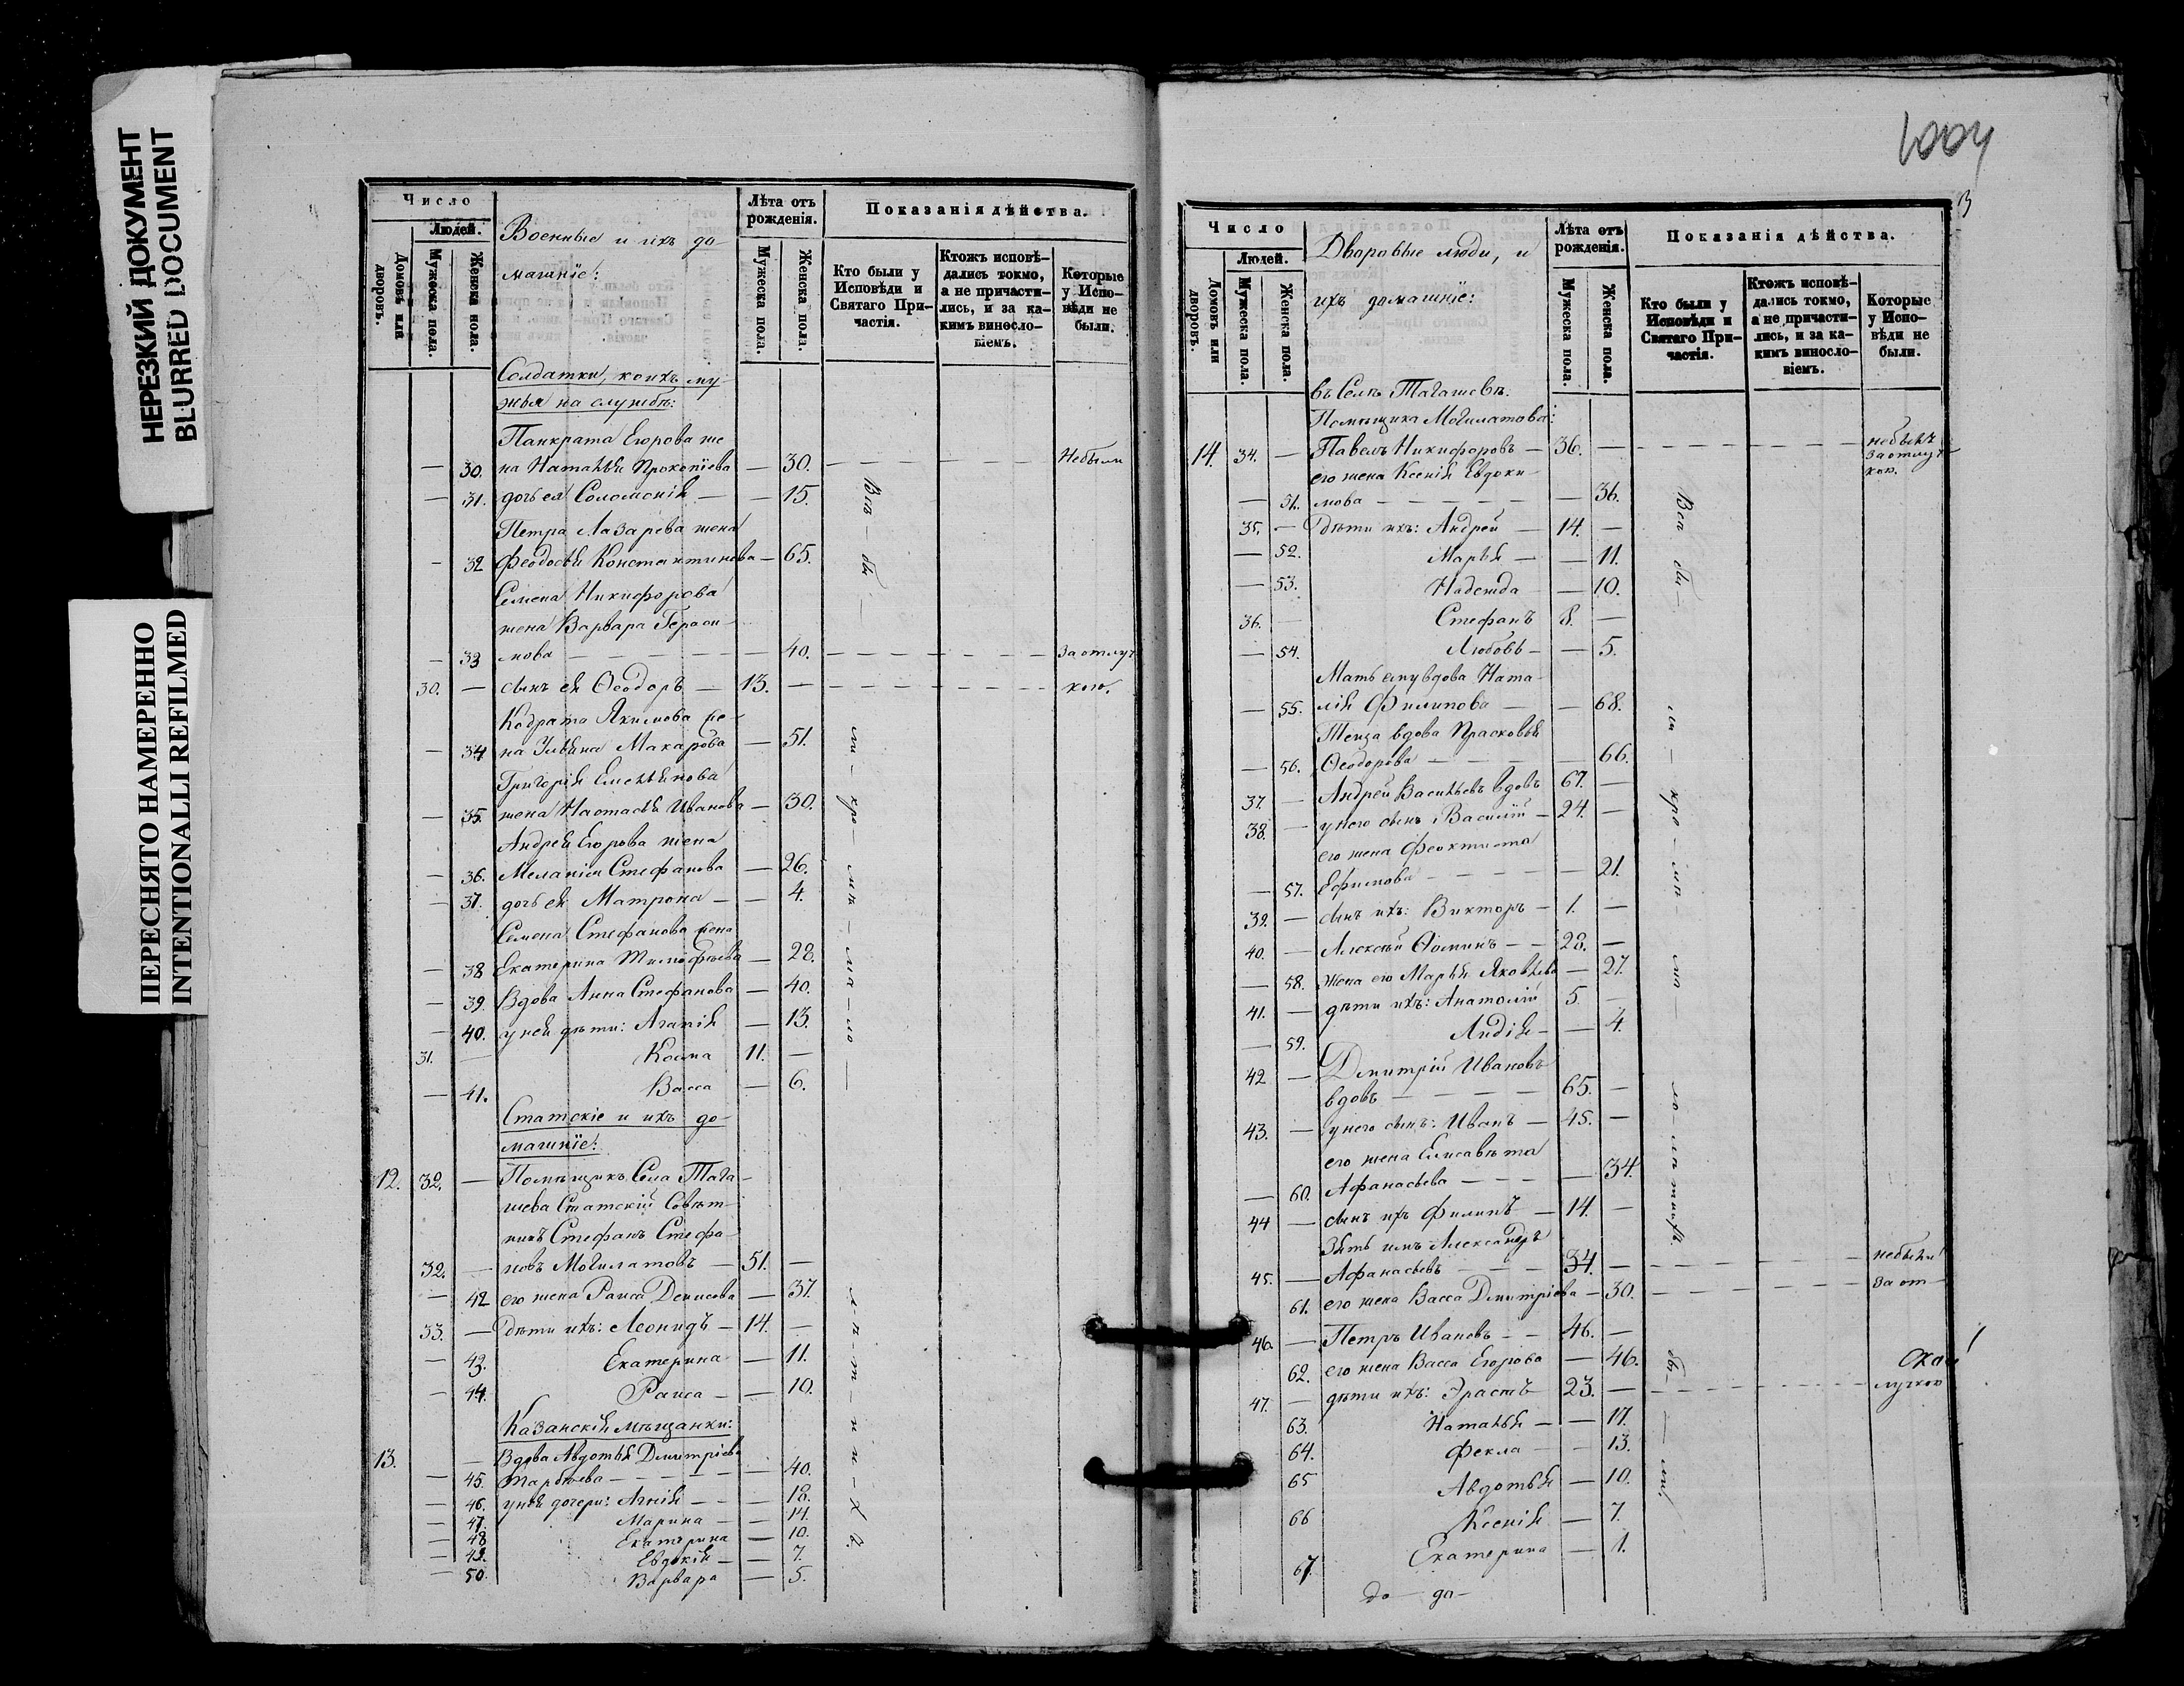 НЕРЕЗКИЙ ДОКУМЕНТ
BLURRED DOCUMENT
ПЕРЕСНЯТО НАМЕРЕННО
INTENTIONALLI REFILMED
Число
Людей.
Домовъ или дворовъ.
Мужеска пола.
Женска пола.
Военные и ихъ до-
машнїе:
Лѣта отъ рожденія.
Мужеска пола.
Женска пола.
Показанія дѣйства.
Кто были у Исповѣди и Святаго Причастія.
Ктожъ исповѣдались токмо, а не причастились, и за какимъ винословіемъ.
Которые у Исповѣди не были.
Солдатки, коихъ му-
жья на службѣ:
Панкрата Егорова же
— 30. на Наталья Прокопїева — 30. Небыли
— 31. дочь ея Соломонія — 15.
Петра Лазарева жена
— 32 Феодосья Константинова — 65.
Семена Никифорова
жена Варвара Гераси-
— 33 мова — 40. за отлуч
30. — сынъ ея Ѳеодоръ — 13. — кою.
Кодрата Якимова же-
— 34 на Ульяна Макарова — 51.
Григорія Емельянова
— 35. жена Настасья Иванова — 30.
Андрея Егорова жена
— 36. Меланія Стефанова — 26.
— 37. дочь ея Матрона — 4.
Семена Стефанова жена
— 38 Екатерина Тимофѣева — 28.
— 39. Вдова Анна Стефанова — 40.
— 40. у ней дѣти: Агапія — 13.
31. — Косма 11. —
— 41. Васса — 6.
Статскіе и ихъ до-
машнїе:
12. 32. — Помѣщикъ Села Тага-
шева Статскій Совѣт-
никъ Стефанъ Стефа-
32. — новъ Могилатовъ — 51. —
— 42 его жена Раиса Денисова — 37.
33. — Дѣти ихъ: Леонидъ — 14. —
— 43. Екатерина — 11.
— 44. Раиса — 10.
Казанскія мѣщанки:
13. — Вдова Авдотья Дмитрїева
— 45. — 40.
— 46. у ней дочери: Агнія — 18.
— 47. Марина — 14.
— 48 Екатерина — 10.
— 49. Евдокія — 7.
— 50. Варвара — 5.
1004
Число
Людей.
Домовъ или дворовъ.
Мужеска пола.
Женска пола.
Дворовые люди, и
ихъ домашнїе:
Лѣта отъ рожденія.
Мужеска пола.
Женска пола.
Показанія дѣйства.
Кто были у Исповѣди и Святаго Причастія.
Ктожъ исповѣдались токмо, а не причастились, и за какимъ винословіемъ.
Которые у Исповѣди не были.
въ Селѣ Тагашевѣ.
Помѣщика Могилатова:
14. 34. — Павелъ Никифоровъ — 36. — небылъ за отлуч кою.
его жена Ксенія Евдоки-
— 51. мова — 36.
35. — Дѣти ихъ: Андрей — 14. —
— 52. Марья — 11.
— 53. Надежда — 10.
36. — Стефанъ 8. —
— 54. Любовь — 5.
Мать ему вдова Ната-
— 55. лія Филипова — 68.
Теща вдова Прасковья
— 56. Ѳеодорова — 66.
37. — Андрей Васильевъ вдовъ 67. —
38. — у него сынъ Василій — 24. —
его жена Феоктиста
— 57. Ефимова — 21.
39. — сынъ ихъ: Викторъ — 1. —
40. — Алексѣй Ѳоминъ — 28. —
— 58. жена его Марья Яковлева — 27.
41. — дѣти ихъ: Анатолій 5. —
— 59. Лидія — 4.
42 — Дмитрій Ивановъ
вдовъ — 65. —
43. — у него сынъ: Иванъ — 45. —
его жена Елисавета
— 60. Афанасьева — 34.
44 — сынъ ихъ Филипъ — 14. —
Зять имъ Александръ
45. — Афанасьевъ — 34. — небыли
61. его жена Васса Дмитріева — 30. за от-
46. — Петръ Ивановъ — 46. —
62. его жена Васса Егорова — 46.
47. — дѣти ихъ: Эрастъ 23. — лучкою
63. Наталья — 17.
64. Фекла — 13.
65 Авдотья — 10.
66 Ксенія — 7.
67. Екатерина — 1.